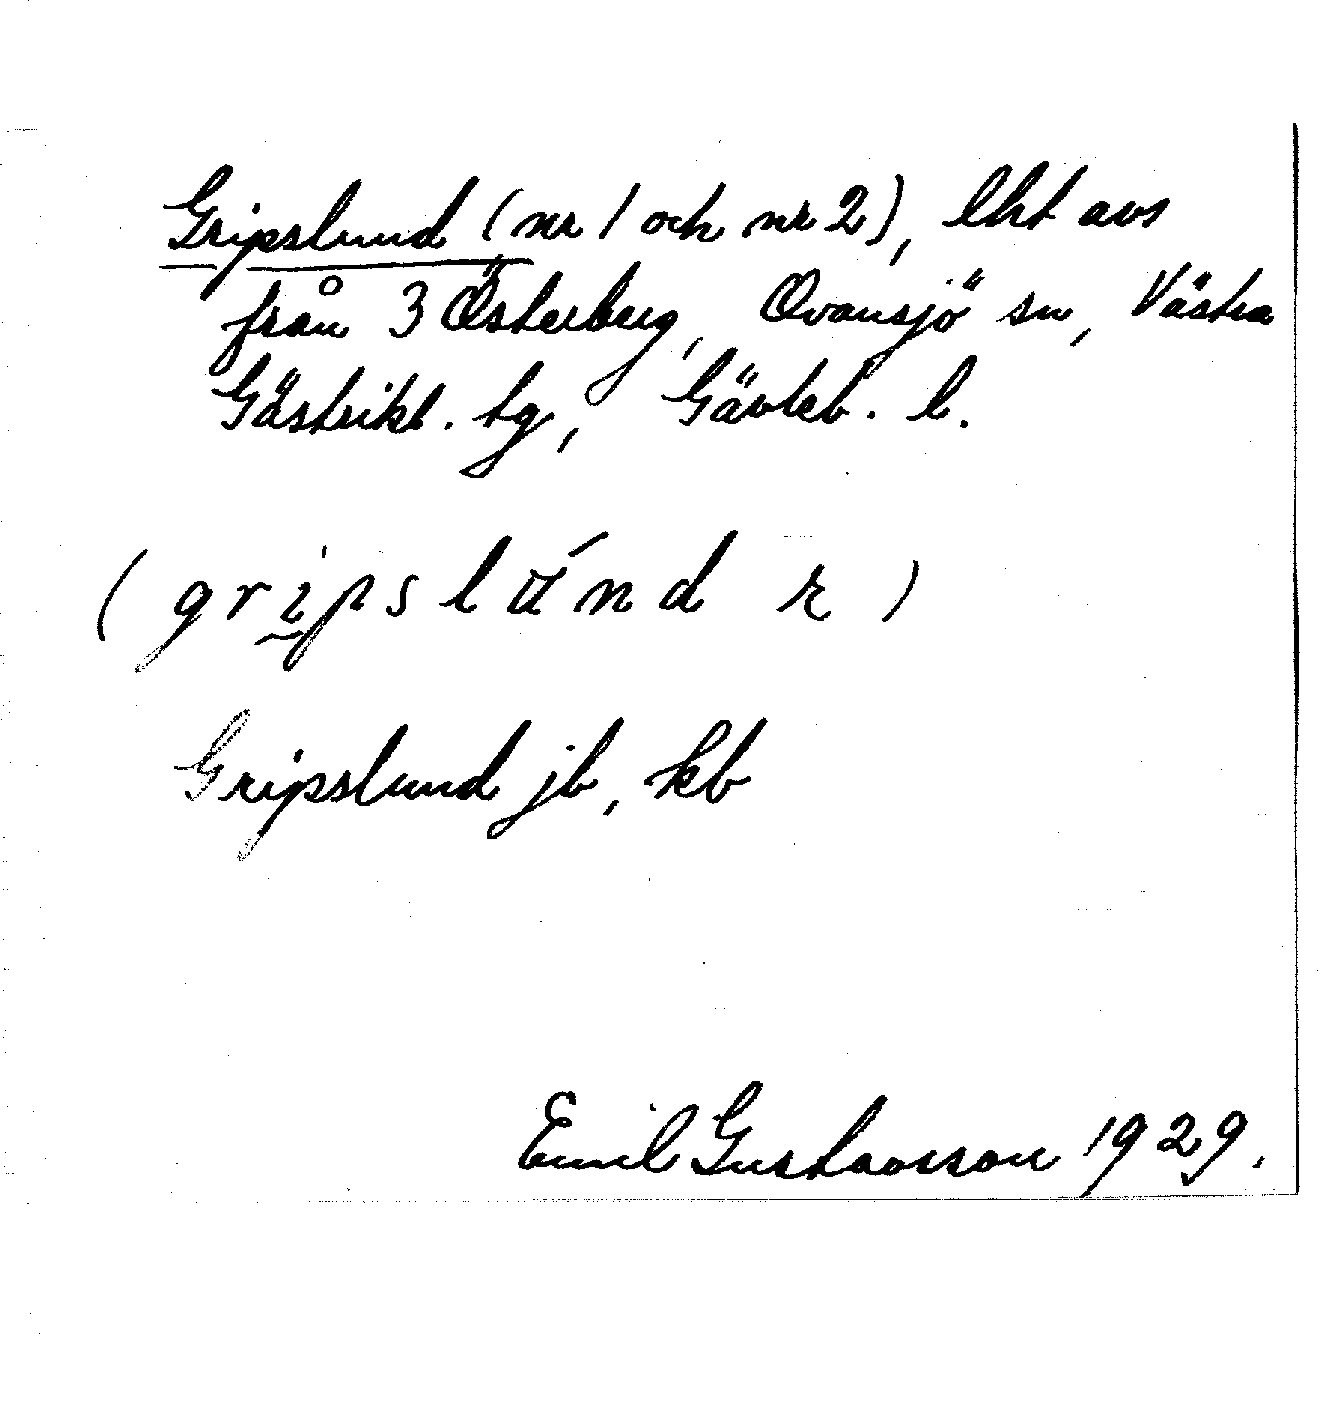 Gripslund (nr 1 och nr 2), lht avs
från 3 Österberg, Ovansjö sn, Västra
Gästrikl. tg, Gävleb. l.
(gripslúnd r)
Gripslund jb, kb
Emil Gustavsson 1929.